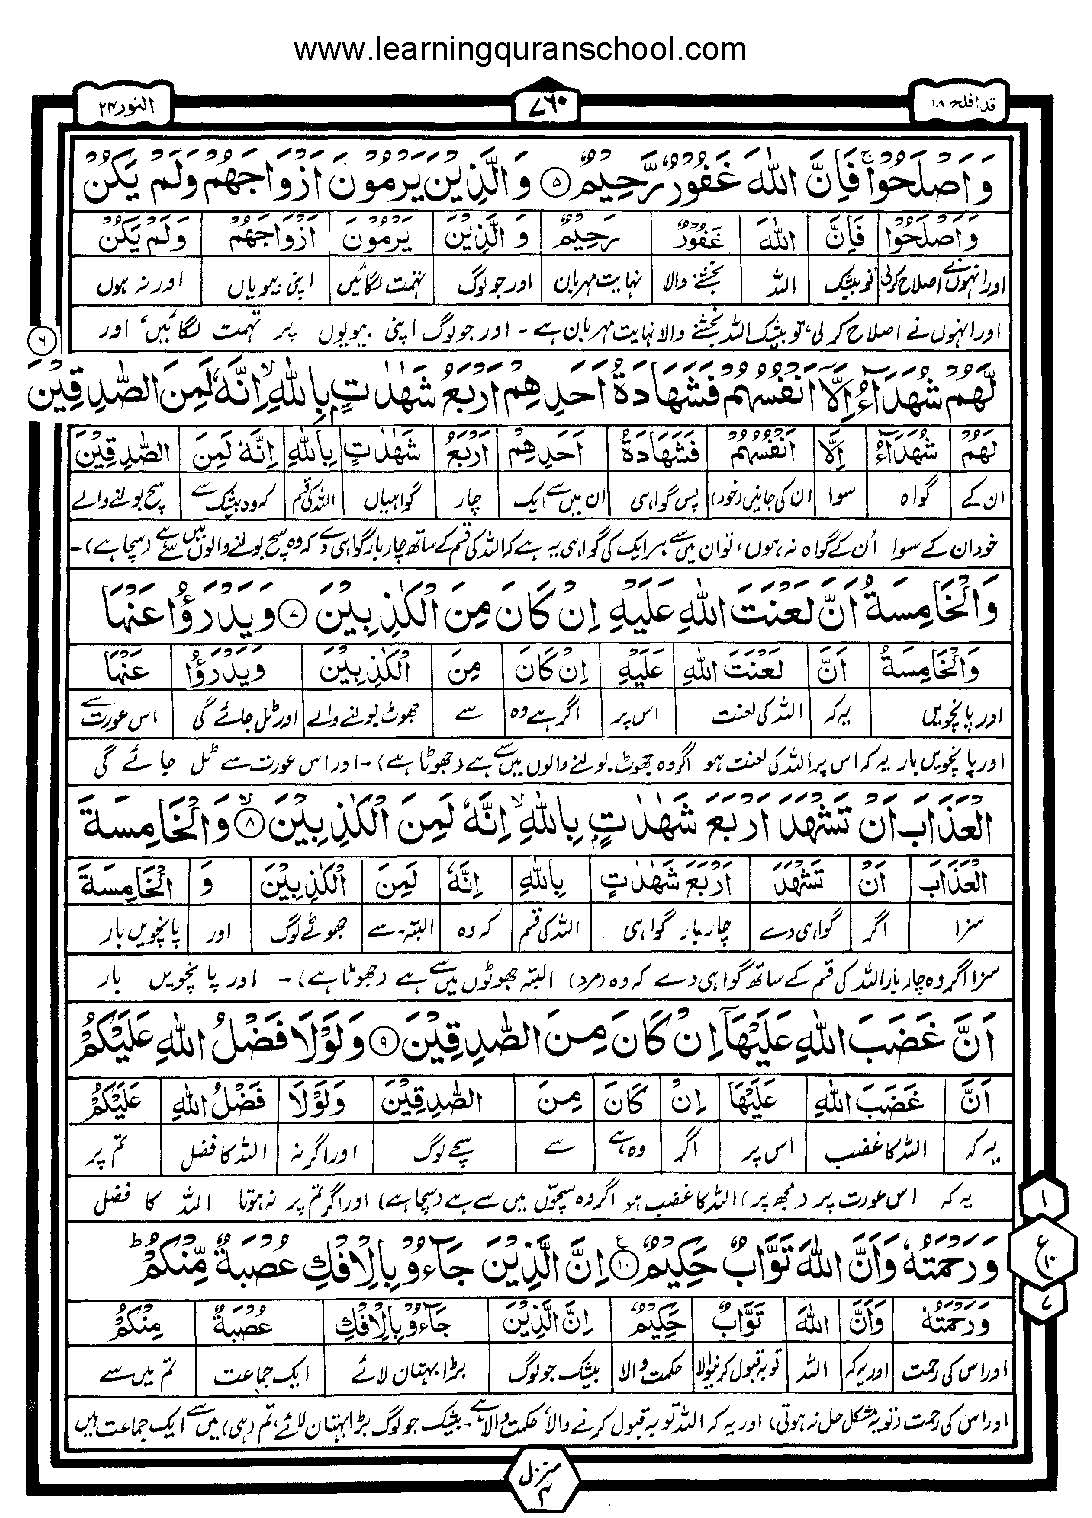 www.learningquranschool.com
قد افلح ١٨
٧٦٠
النور ٢٤
وَاَصْلَحُوْا ۚ فَاِنَّ اللّٰهَ غَفُوْرٌ رَّحِيْمٌ ۝٥ وَالَّذِيْنَ يَرْمُوْنَ اَزْوَاجَهُمْ وَلَمْ يَكُنْ
وَاَصْلَحُوْا فَاِنَّ اللّٰهَ غَفُوْرٌ رَّحِيْمٌ وَالَّذِيْنَ يَرْمُوْنَ اَزْوَاجَهُمْ وَلَمْ يَكُنْ
اور انہوں نے اصلاح کر لی تو بیشک اللہ بخشنے والا نہایت مہربان اور جو لوگ تہمت لگائیں اپنی بیویاں اور نہ ہوں
اور انہوں نے اصلاح کر لی، تو بیشک اللہ بخشنے والا نہایت مہربان ہے ۔ اور جو لوگ اپنی بیویوں پر تہمت لگائیں، اور
٦
لَّهُمْ شُهَدَآءُ اِلَّآ اَنْفُسُهُمْ فَشَهَادَةُ اَحَدِهِمْ اَرْبَعُ شَهٰدٰتٍۭ بِاللّٰهِ ۙ اِنَّهٗ لَمِنَ الصّٰدِقِيْنَ
لَهُمْ شُهَدَآءُ اِلَّآ اَنْفُسُهُمْ فَشَهَادَةُ اَحَدِهِمْ اَرْبَعُ شَهٰدٰتٍ بِاللّٰهِ اِنَّهٗ لَمِنَ الصّٰدِقِيْنَ
ان کے گواہ سوا ان کی جانیں (خود) پس گواہی ان میں سے ایک چار گواہیاں اللہ کی قسم کہ وہ بیشک سے سچ بولنے والے
خود ان کے سوا اُن کے گواہ نہ ہوں، تو ان میں سے ہر ایک کی گواہی یہ ہے کہ اللہ کی قسم کے ساتھ چار بار گواہی دے کہ وہ سچ بولنے والوں میں سے (سچا ہے)۔
وَالْخَامِسَةُ اَنَّ لَعْنَتَ اللّٰهِ عَلَيْهِ اِنْ كَانَ مِنَ الْكٰذِبِيْنَ ۝٧ وَيَدْرَؤُا عَنْهَا
وَالْخَامِسَةُ اَنَّ لَعْنَتَ اللّٰهِ عَلَيْهِ اِنْ كَانَ مِنَ الْكٰذِبِيْنَ وَيَدْرَؤُا عَنْهَا
اور پانچویں یہ کہ اللہ کی لعنت اس پر اگر ہے وہ سے جھوٹ بولنے والے اور ٹل جائے گی اس عورت سے
اور پانچویں بار یہ کہ اس پر اللہ کی لعنت ہو اگر وہ جھوٹ بولنے والوں میں سے ہے (جھوٹا ہے)۔ اور اس عورت سے ٹل جائے گی
الْعَذَابَ اَنْ تَشْهَدَ اَرْبَعَ شَهٰدٰتٍۭ بِاللّٰهِ ۙ اِنَّهٗ لَمِنَ الْكٰذِبِيْنَ ۝٨ۙ وَالْخَامِسَةَ
الْعَذَابَ اَنْ تَشْهَدَ اَرْبَعَ شَهٰدٰتٍ بِاللّٰهِ اِنَّهٗ لَمِنَ الْكٰذِبِيْنَ وَ الْخَامِسَةَ
سزا اگر گواہی دے چار بار گواہی اللہ کی قسم کہ وہ البتہ سے جھوٹے لوگ اور پانچویں بار
سزا اگر وہ چار بار اللہ کی قسم کے ساتھ گواہی دے کہ وہ (مرد) البتہ جھوٹوں میں سے ہے (جھوٹا ہے)۔ اور پانچویں بار
اَنَّ غَضَبَ اللّٰهِ عَلَيْهَآ اِنْ كَانَ مِنَ الصّٰدِقِيْنَ ۝٩ وَلَوْلَا فَضْلُ اللّٰهِ عَلَيْكُمْ
اَنَّ غَضَبَ اللّٰهِ عَلَيْهَا اِنْ كَانَ مِنَ الصّٰدِقِيْنَ وَلَوْلَا فَضْلُ اللّٰهِ عَلَيْكُمْ
یہ کہ اللہ کا غضب اس پر اگر وہ ہے سے سچے لوگ اور اگر نہ اللہ کا فضل تم پر
یہ کہ اس عورت پر (مجھ پر) اللہ کا غضب ہو اگر وہ سچوں میں سے ہے (سچا ہے) اور اگر تم پر نہ ہوتا اللہ کا فضل
وَرَحْمَتُهٗ وَاَنَّ اللّٰهَ تَوَّابٌ حَكِيْمٌ ۝١٠ع اِنَّ الَّذِيْنَ جَآءُوْ بِالْاِفْكِ عُصْبَةٌ مِّنْكُمْ ؕ
١ ع ١٠ ٧
وَرَحْمَتُهٗ وَاَنَّ اللّٰهَ تَوَّابٌ حَكِيْمٌ اِنَّ الَّذِيْنَ جَآءُوْ بِالْاِفْكِ عُصْبَةٌ مِنْكُمْ
اور اس کی رحمت اور یہ کہ اللہ توبہ قبول کرنیوالا حکمت والا بیشک جو لوگ بڑا بہتان لائے ایک جماعت تم میں سے
اور اس کی رحمت (تو یہ مشکل حل نہ ہوتی) اور یہ کہ اللہ توبہ قبول کرنے والا، حکمت والا ہے۔ بیشک جو لوگ بڑا بہتان لائے، تم (ہی) میں سے ایک جماعت ہیں
منزل ۴